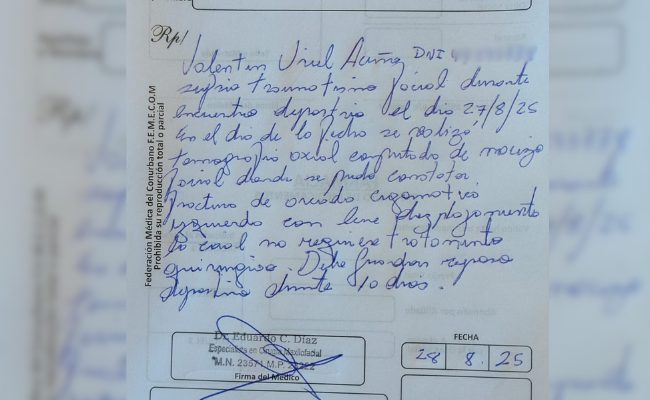 Rp/
Valentin Uriel Acuña DNI
sufrio traumatismo facial durante
encuentro deportivo el dia 27/8/25
En el dia de la fecha se realizó
tomografia axial computada de macizo
facial donde se pudo constatar
fractura de arcada cigomatica
izquierdo con leve desplazamiento
lo cual no requiere tratamiento
quirurgico. Debe guardar reposo
deportivo durante 10 dias.
Federación Médica del Conurbano F.E.M.E.C.O.M
Prohibida su reproducción total o parcial
Dr. Eduardo C. Diaz
Especialista en Cirugía Maxilofacial
M.N. 23571 M.P.
Firma del Médico
FECHA
28 8 25